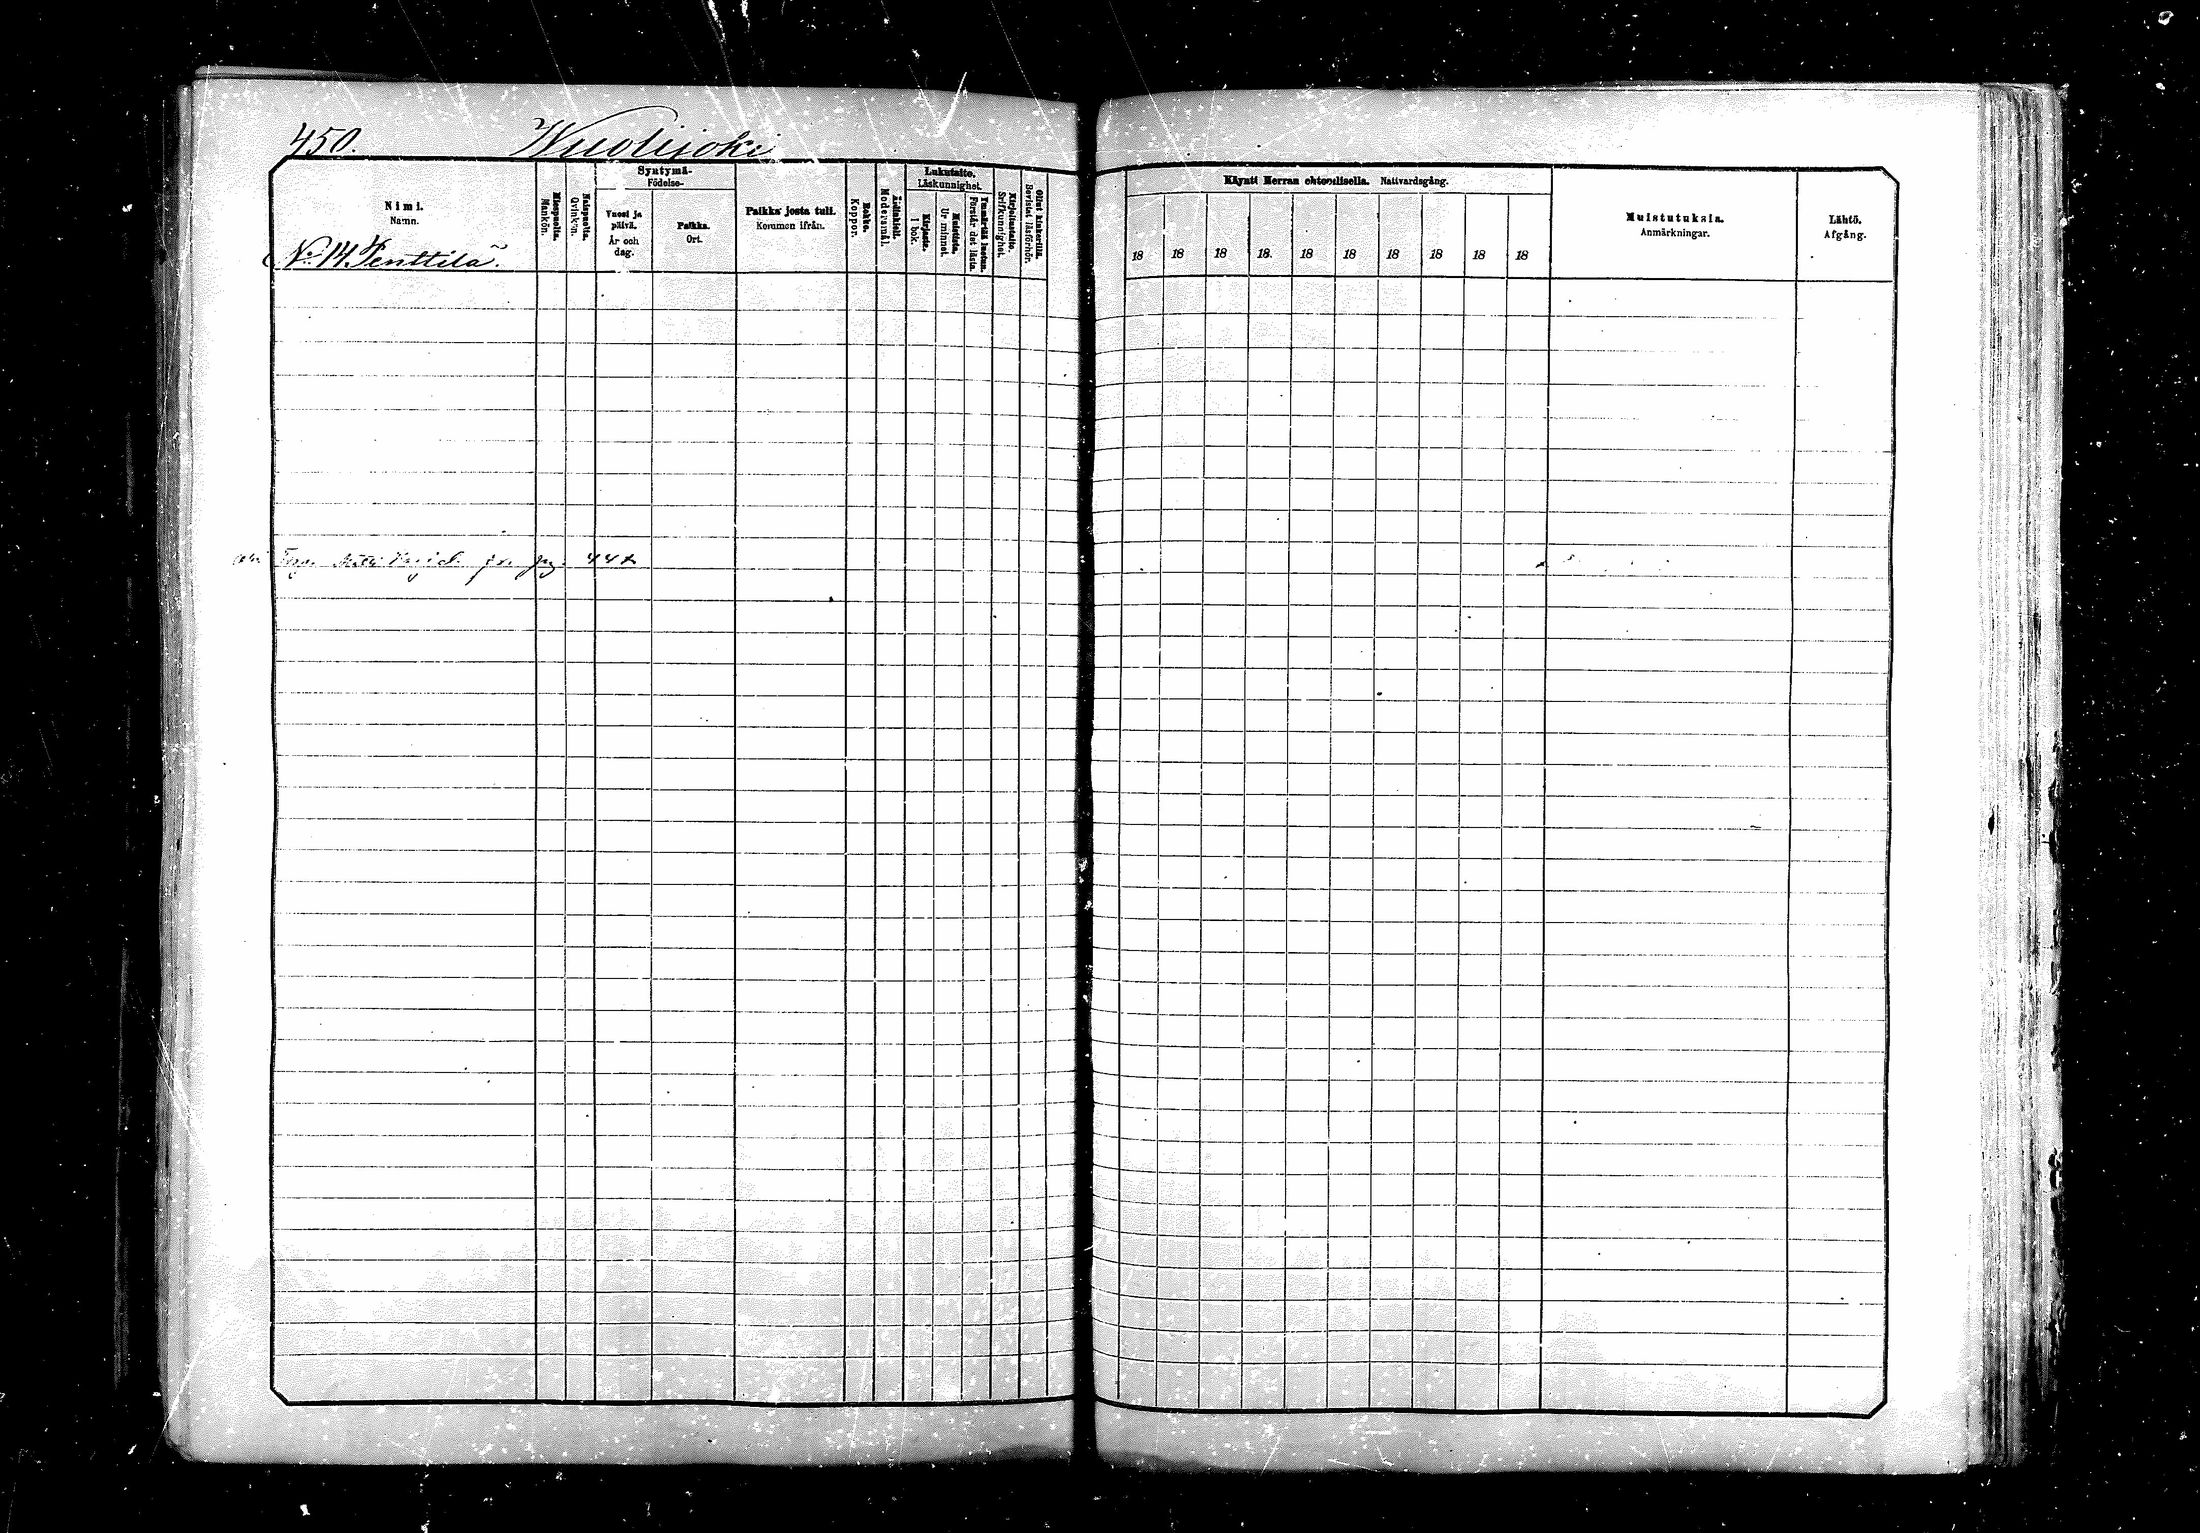 450.
Wuolijoki
Nimi.
Namn.
No 14. Penttilä.
Miespuolia.
Mankön.
Naispuolia.
Qvinkön.
Syntymä-
Födelse-
Vuosi ja päivä.
År och dag.
Paikka.
Ort.
Paikka josta tuli.
Kommen ifrån.
Rokko.
Koppor.
Äidinkieli.
Modersmål.
Lukutaito.
Läskunnighet.
Kirjasta.
I bok.
Muistista.
Ur minnet.
Ymmärtää luetun.
Förstår det lästa.
Kirjoitustaito.
Skrifkunnighet.
Ollut kinkerillä.
Bevistat läsförhör.
Käynti Herran ehtoollisella. Nattvardsgång.
18 18 18 18 18 18 18 18 18 18
Muistutuksia.
Anmärkningar.
Lähtö.
Afgång.
442